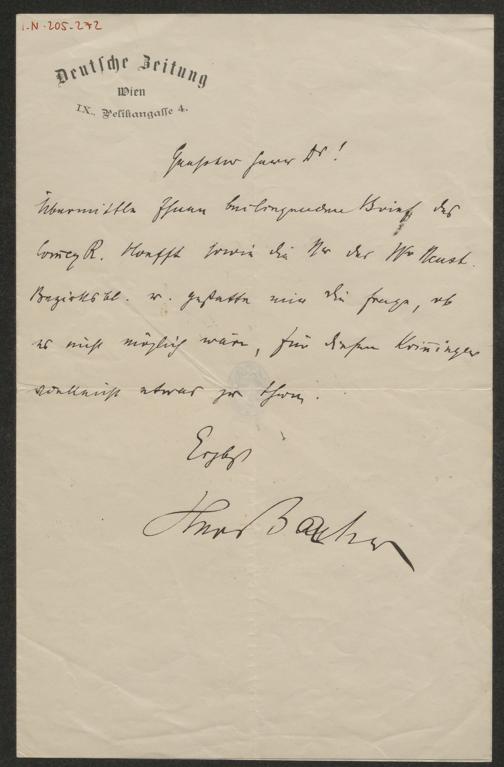 I.N.-205.272
Deutsche Zeitung
Wien
IX., Pelikangasse 4.
Geehrter Herr Dr!
Übermittle Ihnen beiliegenden Brief des
R. sowie die Nr der Wr Neust.
Bezirksbl. u. gestatte mir die Frage, ob
es nicht möglich wäre, für diesen
vielleicht etwas zu thun.
Ergbst